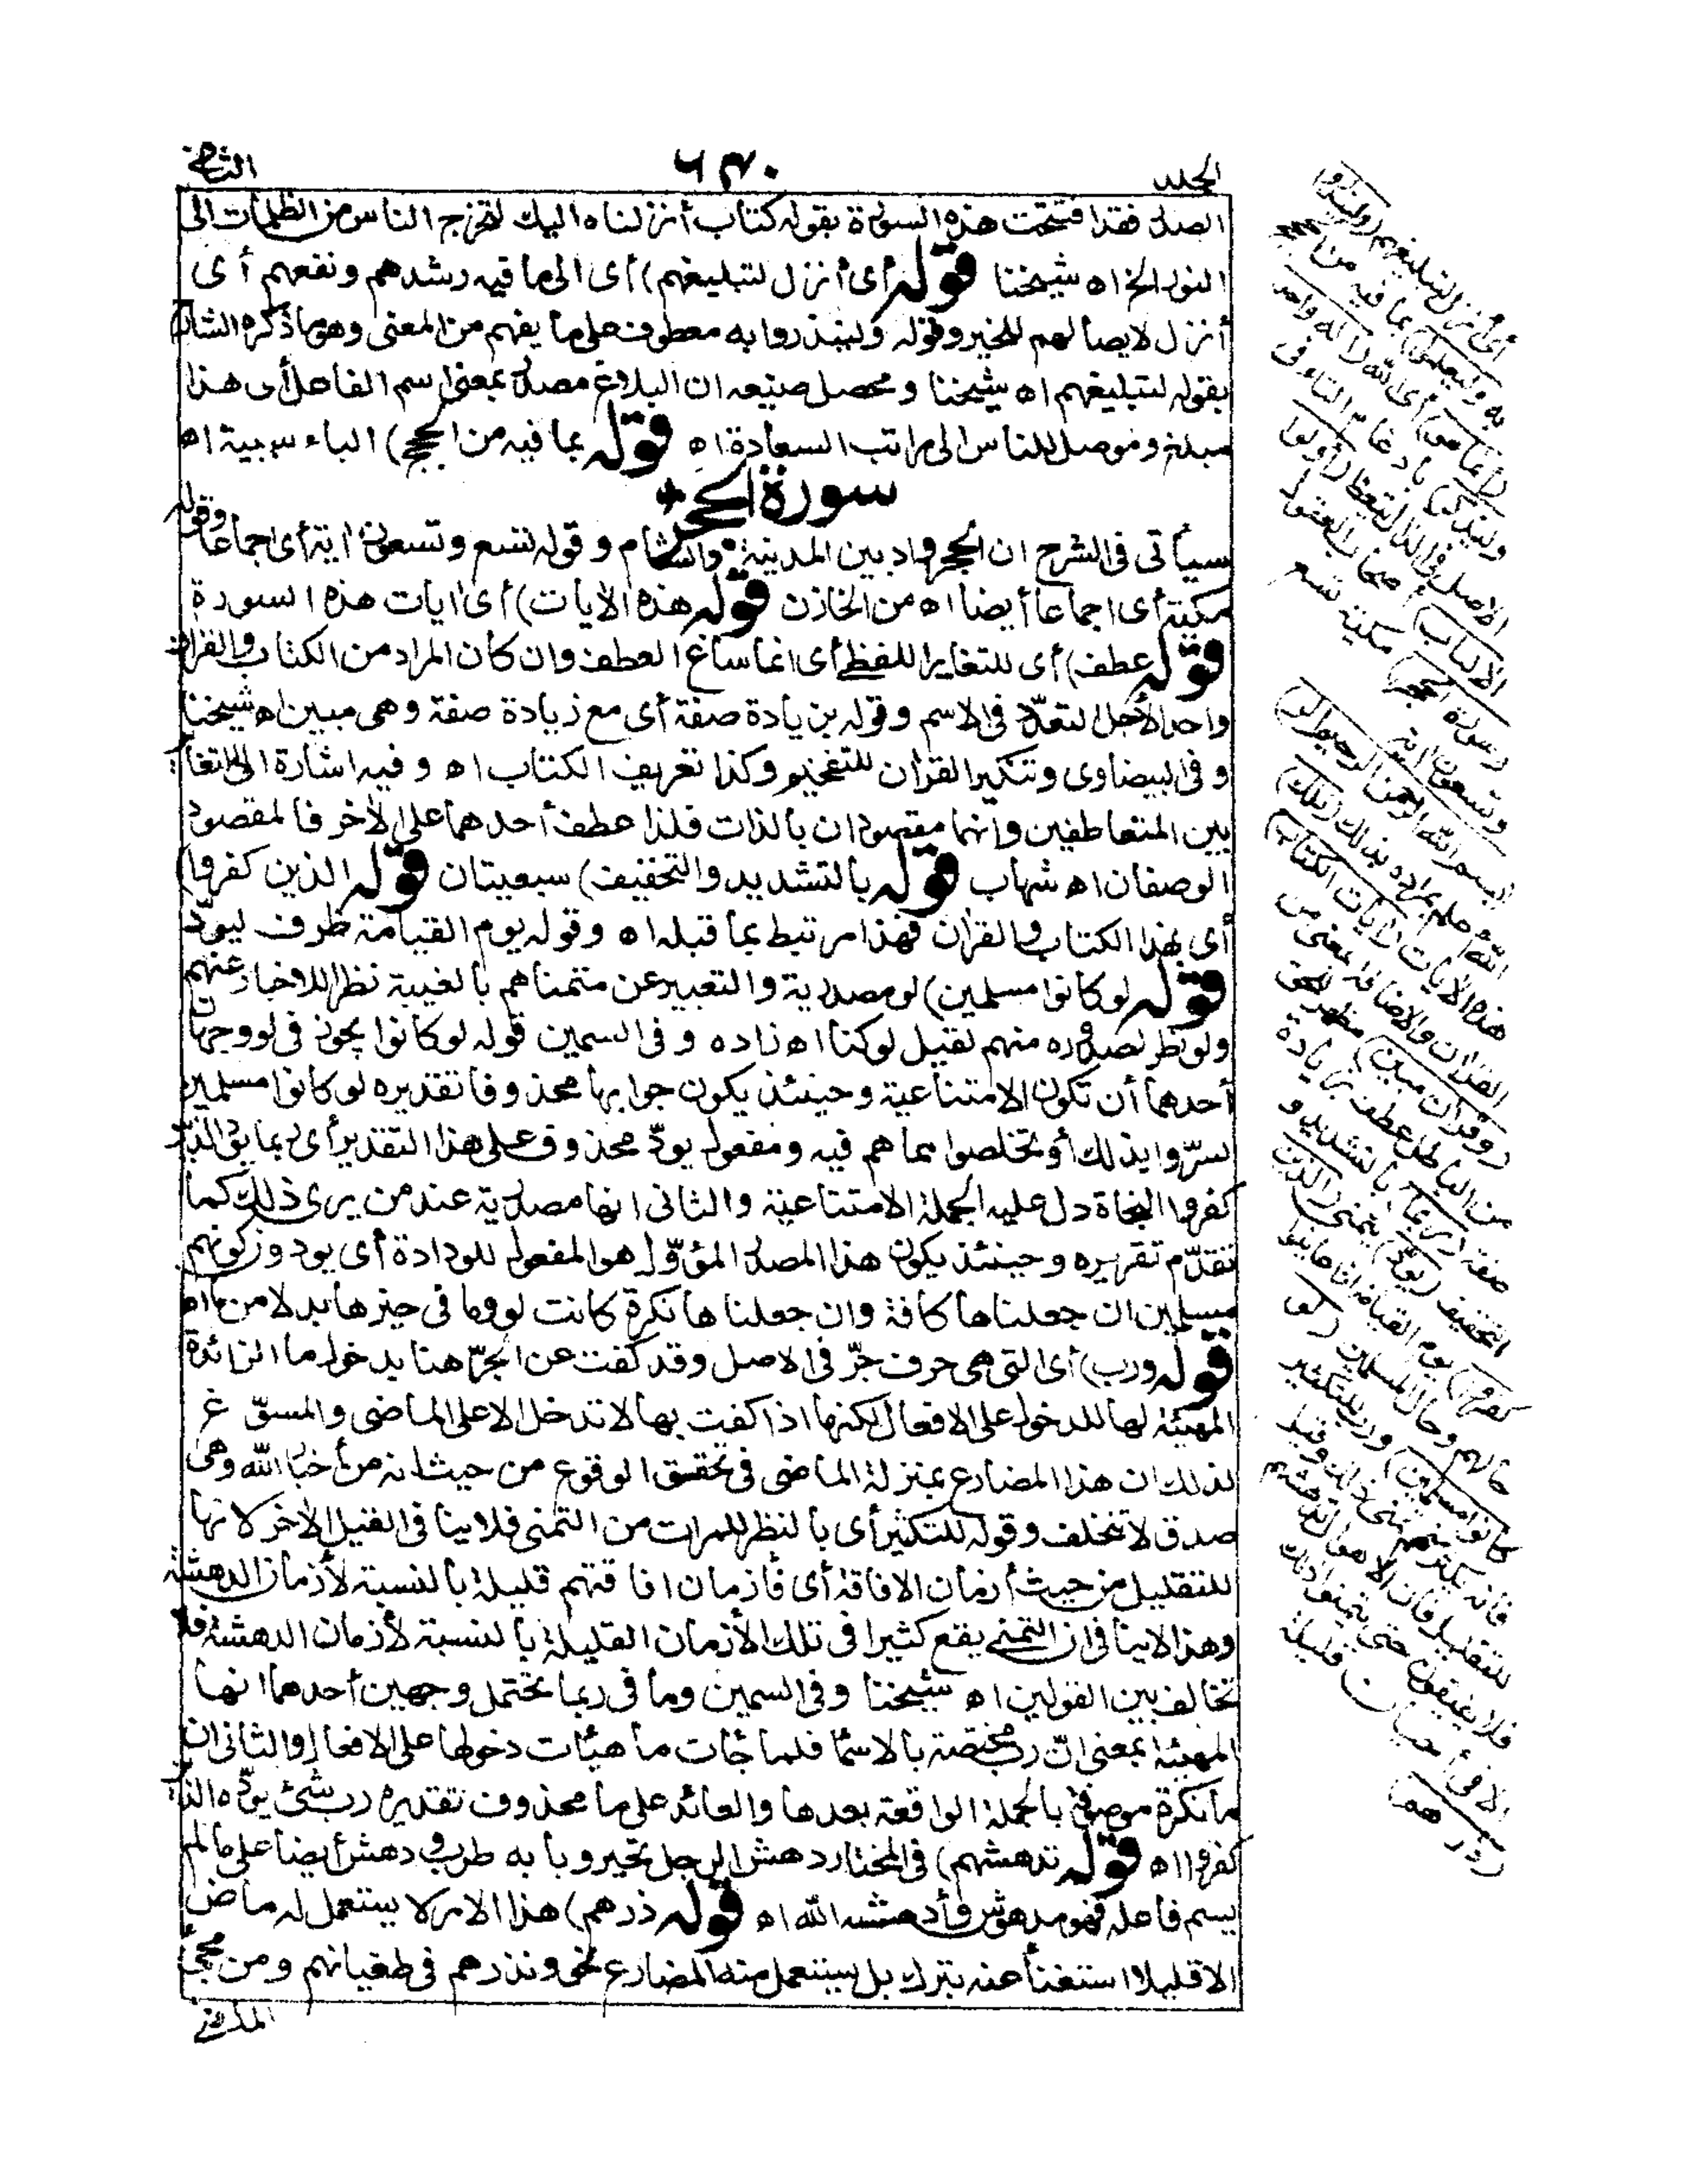 الجلد ٦٣٠ الثانى
الصدر فقد افتتحت هذه السورة بقوله كتاب أنزلناه اليك لتخرج الناس من الظلمات الى
النور الخ اه شيخنا قوله أى أنزل لتبليغهم) أى الى ما فيه رشدهم ونفعهم أى
أنزل لايصالهم للخير وقوله ولينذروا به معطوف على ما يفهم من المعنى وهو ما ذكره الشارح
بقوله لتبليغهم اه شيخنا ومحصل صنيعه ان البلاغ مصدر بمعنى اسم الفاعل أى هذا
مبلغ وموصل للناس الى مراتب السعادة اه قوله بما فيه من الحجج) الباء سببية اه
سورة الحجر
سيأتى فى الشرح ان الحجر واد بين المدينة والشام وقوله تسع وتسعون اية أى اجماعا وقوله
مكية أى اجماعا أيضا اه من الخازن قوله هذه الايات) أى ايات هذه السورة
قوله عطف) أى للتغاير اللفظى أى انما ساغ العطف وان كان المراد من الكتاب والقران
واحدا لأجل التعدد فى الاسم وقوله بزيادة صفة أى مع زيادة صفة وهى مبين اه شيخنا
وفى البيضاوى وتنكير القران للتفخيم وكذا تعريف الكتاب اه وفيه اشارة الى التغاير
بين المتعاطفين وانهما مقصودان بالذات فلذا عطف أحدهما على الأخر فالمقصود
الوصفان اه شهاب قوله بالتشديد والتخفيف) سبعيتان قوله الذين كفروا)
أى بهذا الكتاب والقران فهذا مرتبط بما قبله اه وقوله يوم القيامة ظرف ليودّ
قوله لو كانوا مسلمين) لو مصدرية والتعبير عن متمناهم بالغيبة نظرا للاخبار عنهم
ولو نظر لصدوره منهم لقيل لو كنا اه زاده وفى السمين قوله لو كانوا يجوز فى لو وجهان
أحدهما أن تكون الامتناعية وحينئذ يكون جوابها محذوفا تقديره لو كانوا مسلمين
لسرّوا بذلك أو تخلصوا مما هم فيه ومفعول يودّ محذوف على هذا التقدير أى ربما يودّ الذين
كفروا النجاة دل عليه الجملة الامتناعية والثانى انها مصدرية عند من يرى ذلك كما
تقدّم تقريره وحينئذ يكون هذا المصدر المؤوّل هو المفعول للودادة أى يودون كونهم
مسلمين ان جعلناها كافة وان جعلناها نكرة كانت لو وما فى حيزها بدلا من ما اه
قوله ورب) أى التى هى حرف جرّ فى الاصل وقد كفت عن الجرّ هنا بدخول ما الزائدة
المهيئة لها للدخول على الافعال لكنها اذا كفت بها لا تدخل الا على الماضى والمسوّغ
لذلك ان هذا المضارع بمنزلة الماضى فى تحقق الوقوع من حيث انه من أخبار الله وهى
صدق لا تتخلف وقوله للتكثير أى بالنظر للمرات من التمنى فلا ينافى القيل الأخر لانها
للتقليل من حيث أزمان الافاقة أى فأزمان افاقتهم قليلة بالنسبة لأزمان الدهشة
وهذا لا ينافى ان التمنى يقع كثيرا فى تلك الأزمان القليلة بالنسبة لأزمان الدهشة فلا
تخالف بين القولين اه شيخنا وفى السمين وما فى ربما تحتمل وجهين أحدهما انها
المهيئة بمعنى انّ رب مختصة بالاسما فلما جأت ما هيأت دخولها على الافعال والثانى ان
ما نكرة موصوفة بالجملة الواقعة بعدها والعائد على ما محذوف تقديره رب شئ يودّه الذين
كفروا اه قوله تدهشهم) فى المختار دهش الرجل تحير وبابه طرب ودهش أيضا على ما لم
يسم فاعله فهو مدهوش وأدهشه الله اه قوله ذرهم) هذا الامر لا يستعمل له ماض
الا قليلا استغناء عنه بترك بل يستعمل منه المضارع نحو ونذرهم فى طغيانهم ومن مجئ
الماضى
أى أنزل لتبليغهم (ولينذروا
به وليعلموا) بما فيه من الحجج
(انما هو) أى الله (اله واحد
وليذكر) بادغام التاء فى
الاصل فى الذال يتعظ (أولوا
الالباب) أصحاب العقول
(سورة الحجر) مكية تسع
وتسعون اية
(بسم الله الرحمن الرحيم الر)
الله أعلم بمراده بذلك (تلك)
هذه الايات (ايات الكتاب)
القران والاضافة بمعنى من
(وقران مبين) مظهر للحق
من الباطل عطف بزيادة
صفة (ربما) بالتشديد و
التخفيف (يودّ) يتمنى (الذين
كفروا) يوم القيامة اذا عاينوا
حالهم وحال المسلمين (لو
كانوا مسلمين) ورب للتكثير
فانه يكثر منهم تمنى ذلك وقيل
للتقليل فان الاهوال تدهشهم
فلا يفيقون حتى يتمنوا ذلك
الا فى أحيان قليلة
(ذرهم)